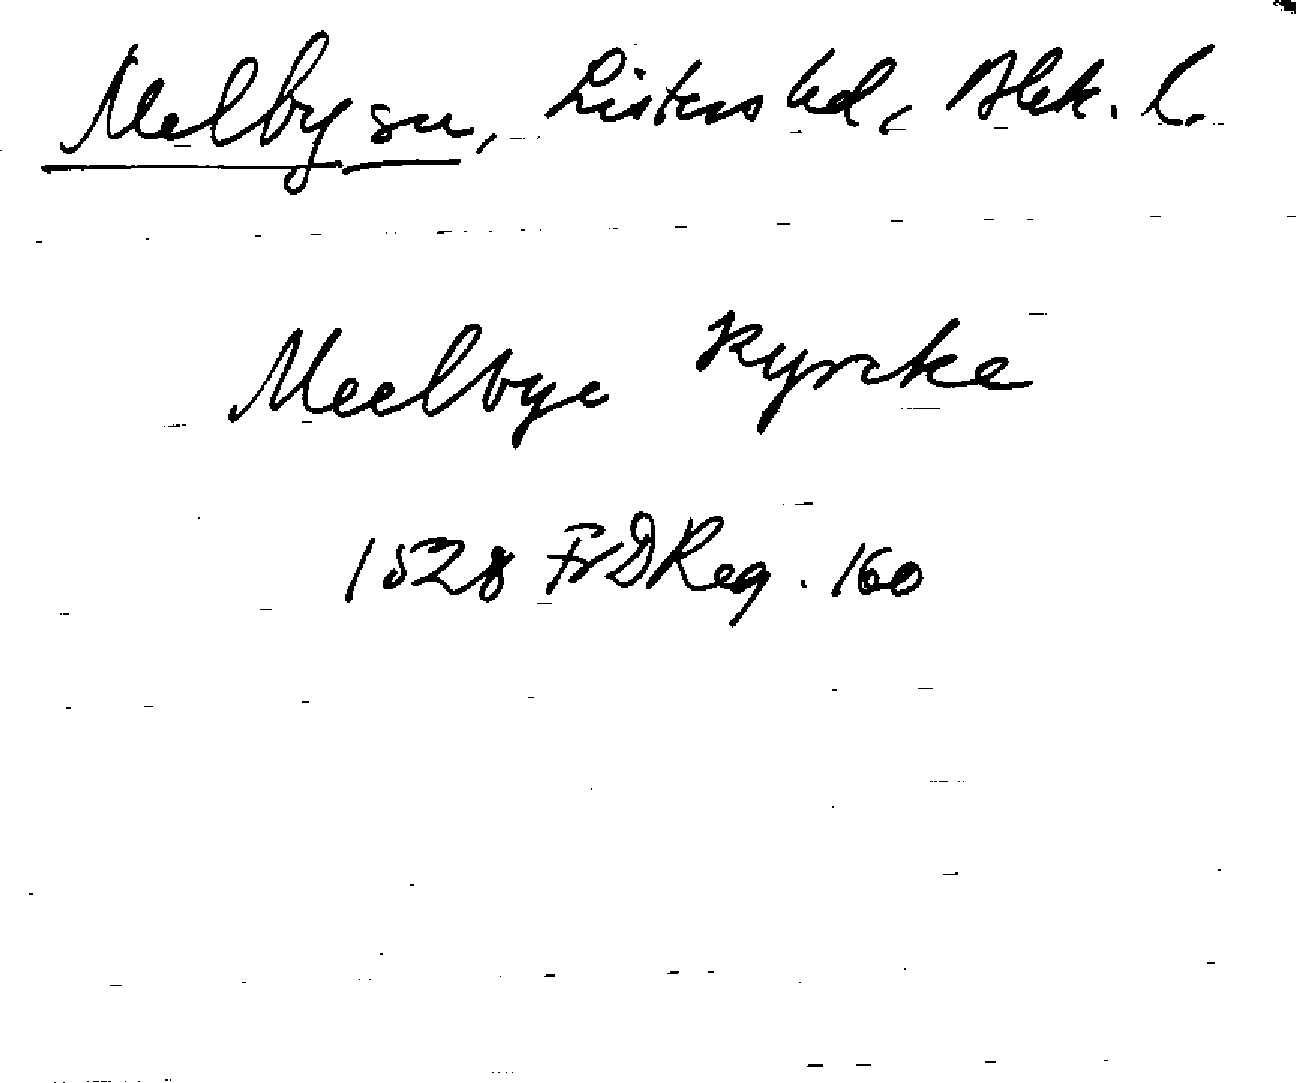 Mellby sn, Listers hd, Blek. l.
Meelbye kyrcke
1528 FrDReg. 160